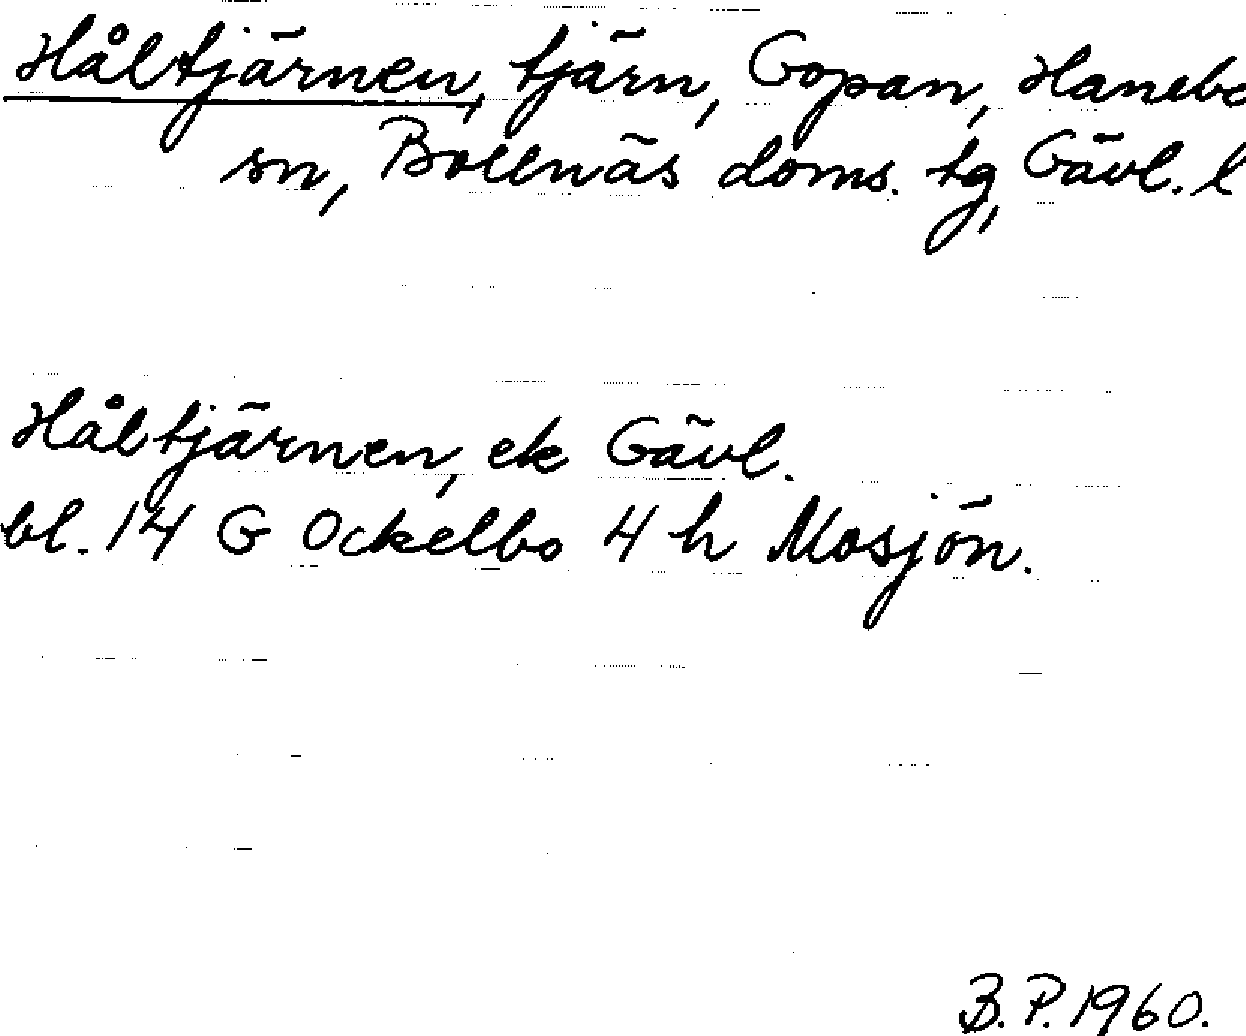 Håltjärnen, tjärn, Gopan, Hanebo
sn, Bollnäs doms. tg, Gävl. l
Håltjärnen, ek Gävl.
bl. 14 G Ockelbo 4 h Mosjön.
B. P. 1960.